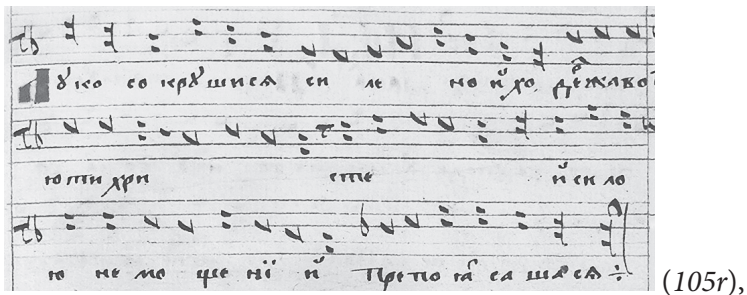 Лꙋко со крꙋшисѧ си ле но и҆хо державо
ю ти хри сте и҆ си ло
ю не мо ще нї и҆ Препо ꙗ са ша сѧ ÷
(105r),